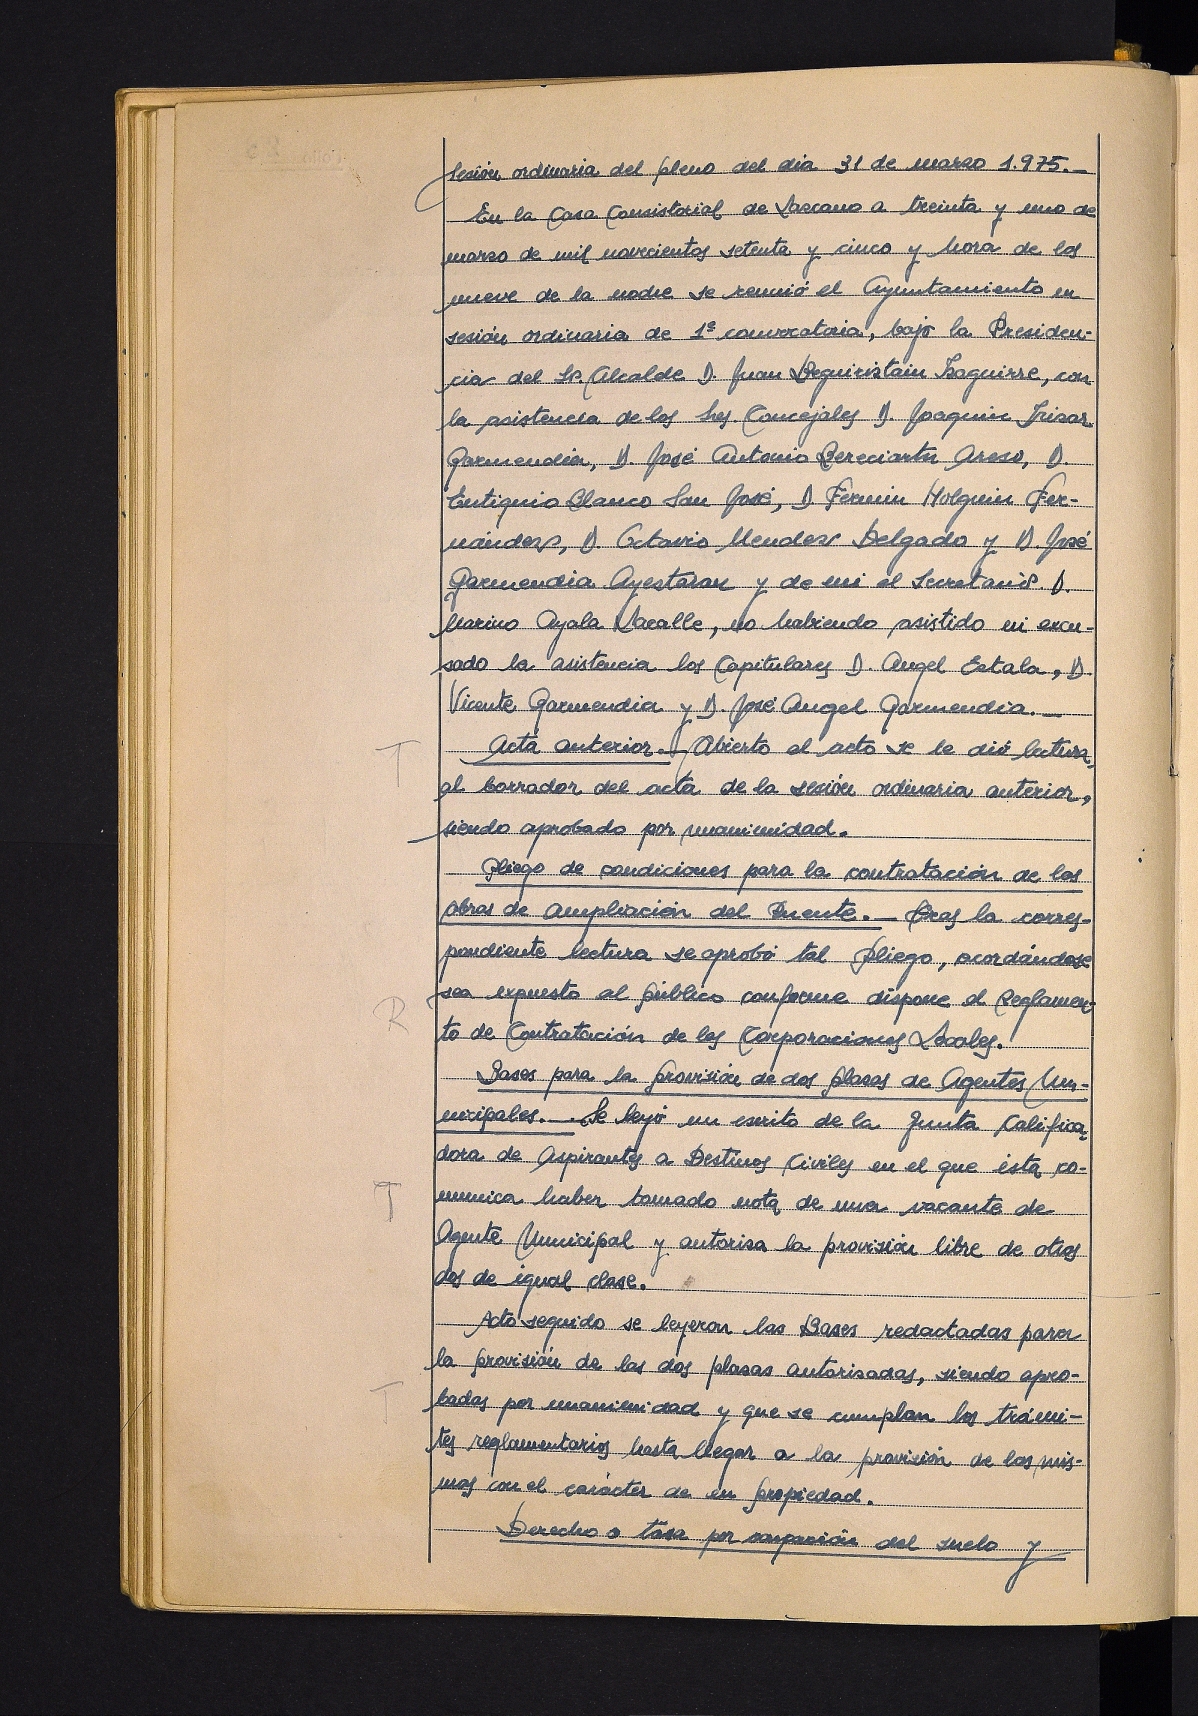 Sesión ordinaria del pleno del dia 31 de marzo 1.975.-
En la Casa Consistorial de Lazcano a treinta y uno de
marzo de mil novecientos setenta y cinco y hora de las
nueve de la noche se reunió el Ayuntamiento en
sesión ordinaria de 1ª convocatoria, bajo la Presiden-
cia del Sr. Alcalde D. Juan Beguiristain Izaguirre, con
la asistencia de los Sres. Concejales D. Joaquin Irizar
Garmendia, D. José Antonio Bereciartu Areso, D.
Eutiquio Blanco San José, D. Fermin Holguin Fer-
nández, D. Octavio Mendez Delgado y D. José
Garmendia Ayestaran y de mi el Secretario D.
Marino Ayala Lacalle, no habiendo asistido ni excu-
sado la asistencia los Capitulares D. Angel Estala, D.
Vicente Garmendia y D. José Angel Garmendia.-
T
Acta anterior.- Abierto el acto se le dió lectura
al borrador del acta de la sesión ordinaria anterior,
siendo aprobado por unanimidad.
Pliego de condiciones para la contratación de las
obras de ampliación del Puente.- Tras la corres-
pondiente lectura se aprobó tal Pliego, acordándose
sea expuesto al público conforme dispone el Reglamen-
R
to de Contratación de las Corporaciones Locales.
Bases para la provisión de dos plazas de Agentes Mu-
nicipales.- Se leyó un escrito de la Junta Califica-
dora de Aspirantes a Destinos Civiles en el que ésta co-
munica haber tomado nota de una vacante de
T
Agente Municipal y autoriza la provisión libre de otras
dos de igual clase.
Acto seguido se leyeron las Bases redactadas para
la provisión de las dos plazas autorizadas, siendo apro-
T
badas por unanimidad y que se cumplan los trámi-
tes reglamentarios hasta llegar a la provisión de las mis-
mas con el carácter de en propiedad.
Derecho o tasa por ocupación del suelo y